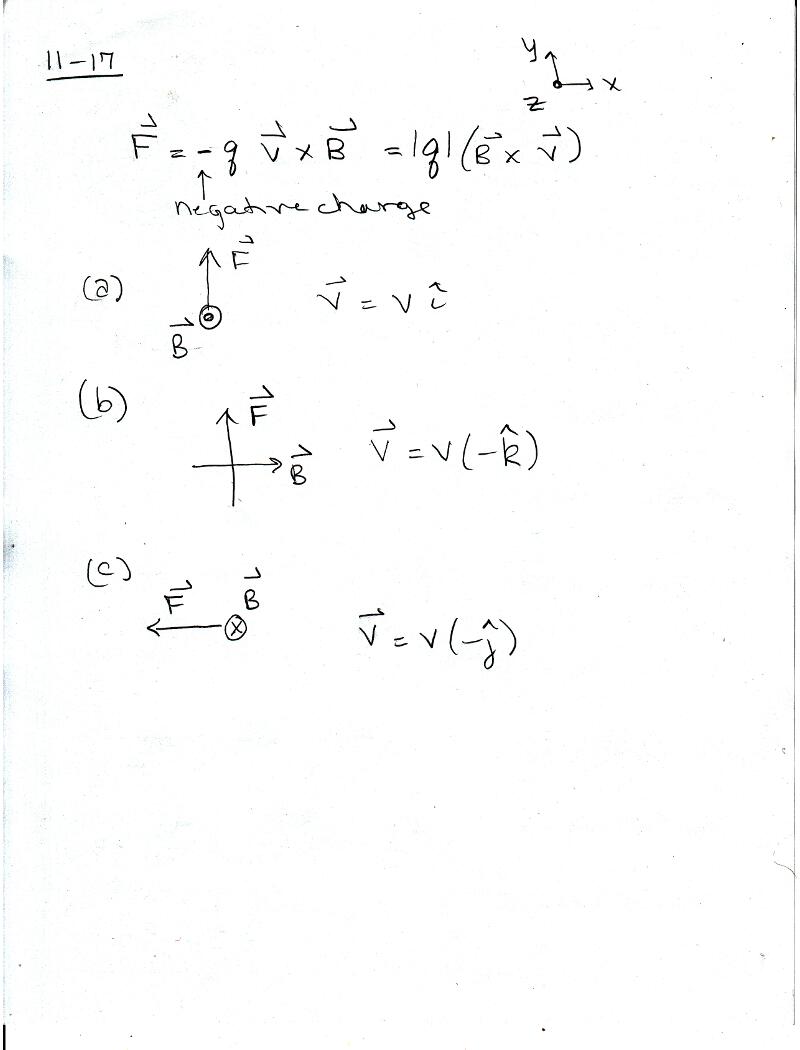 11-17
y
x
z
F⃗ = -q V⃗ × B⃗ = |q|(B⃗ × V⃗)
↑
negative charge
(a) F⃗ V⃗ = V î
B⃗
(b) F⃗ V⃗ = V(-k̂)
B⃗
(c) F⃗ B⃗ V⃗ = V(-ĵ)